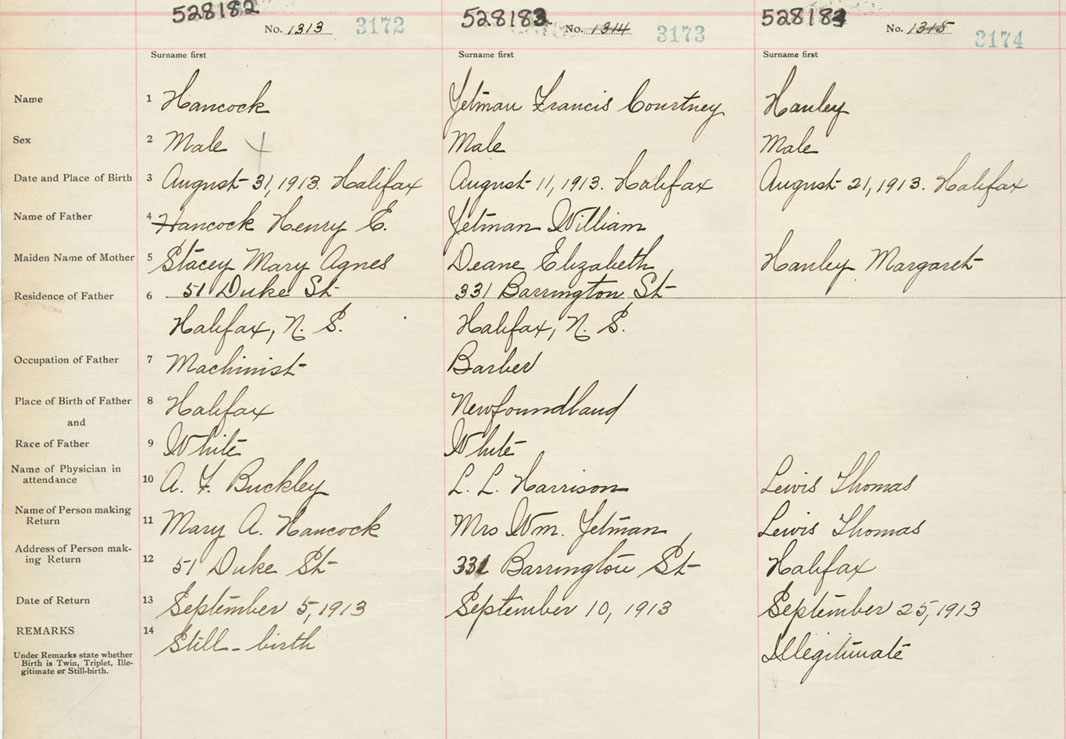 528182 528183 528184
No. 1313 3172 No. 1314 3173 No. 1315 3174
Surname first Surname first Surname first
Name 1 Hancock Yetman Francis Courtney Hanley
Sex 2 Male Male Male
Date and Place of Birth 3 August 31, 1913. Halifax August 11, 1913. Halifax August 21, 1913. Halifax
Name of Father 4 Hancock Henry E. Yetman William
Maiden Name of Mother 5 Stacey Mary Agnes Deane Elizabeth Hanley Margaret
Residence of Father 6 51 Duke St 331 Barrington St
Halifax, N. S. Halifax, N. S.
Occupation of Father 7 Machinist Barber
Place of Birth of Father 8 Halifax Newfoundland
and
Race of Father 9 White White
Name of Physician in
attendance 10 A. F. Buckley L. L. Harrison Lewis Thomas
Name of Person making
Return 11 Mary A. Hancock Mrs Wm. Yetman Lewis Thomas
Address of Person mak-
ing Return 12 51 Duke St 331 Barrington St Halifax
Date of Return 13 September 5, 1913 September 10, 1913 September 25, 1913
REMARKS 14 Still-birth Illegitimate
Under Remarks state whether
Birth is Twin, Triplet, Ille-
gitimate or Still-birth.